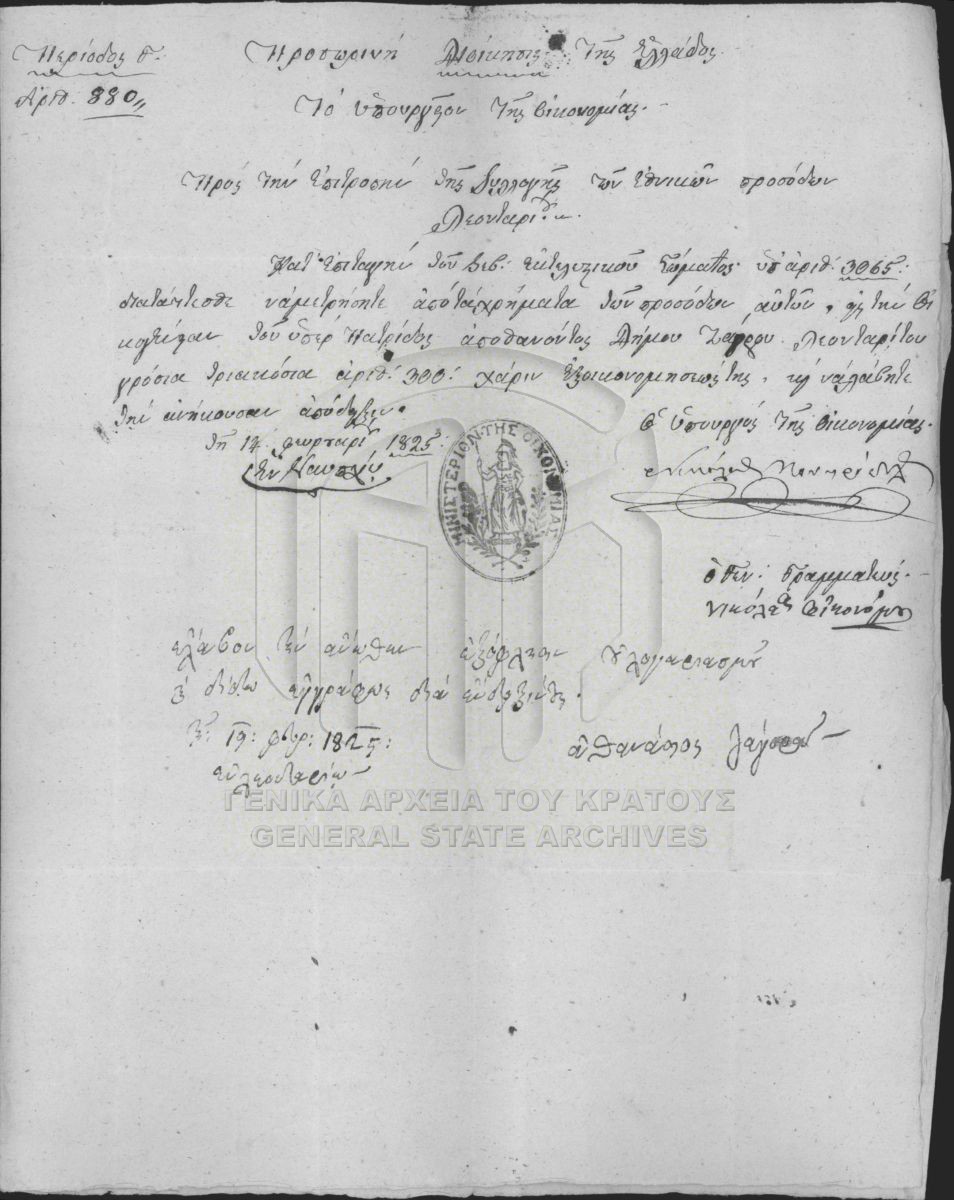 Περίοδος Γ.
Ἀριθ. 880,,
Προσωρινὴ Διοίκησις Τῆς Ἑλλάδος.
Τὸ ὑπουργεῖον Τῆς οἰκονομίας.
Πρὸς τὴν Ἐπιτροπὴν τῆς Συλλογῆς τῶν ἐθνικῶν προσόδων
Λεονταρίου.
Κατ' ἐπιταγὴν τοῦ Σεβ: ἐκτελεστικοῦ Σώματος ὑπ' ἀριθ: 3065:
διατάττεσθε νὰ μετρήσητε ἀπὸ τὰ χρήματα τῶν προσόδων αὐτῶν, εἰς τὴν οἰ
κογένειαν τοῦ ὑπὲρ Πατρίδος ἀποθανόντος Δήμου Λεονταρίτου
γρόσια τριακόσια ἀριθ: 300: χάριν ἐξοικονομήσεώς της, καὶ νὰ λάβητε
τὴν ἀνήκουσαν ἀπόδειξιν.
τῇ 14: φευρουαρί 1825:
Ἐν Ναυπλίῳ
ὁ Ὑπουργὸς Τῆς οἰκονομίας.
ΜΙΝΙΣΤΕΡΙΟΝ ΤΗΣ ΟΙΚΟΝΟΜΙΑΣ
ὁ Γεν: Γραμματεὺς.
νικόλαος οἰκονόμου
ἔλαβον τὴν ἄνωθεν ἐξόφλησιν λογαριασμοῦ
ἐγγράφως διὰ
τῇ 19: φερ: 1825:
ἐν λεονταρίῳ
ἀθανάσιος
ΓΕΝΙΚΑ ΑΡΧΕΙΑ ΤΟΥ ΚΡΑΤΟΥΣ
GENERAL STATE ARCHIVES